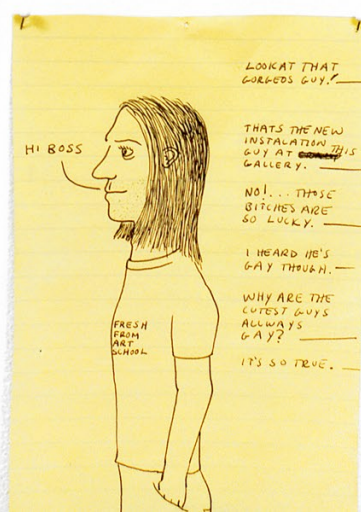 HI BOSS
FRESH
FROM
ART
SCHOOL
LOOK AT THAT
GORGEOS GUY!
THATS THE NEW
INSTALATION
GUY AT THIS
GALLERY.
NO!... THOSE
BITCHES ARE
SO LUCKY.
I HEARD HE'S
GAY THOUGH.
WHY ARE THE
CUTEST GUYS
ALLWAYS
GAY?
IT'S SO TRUE.